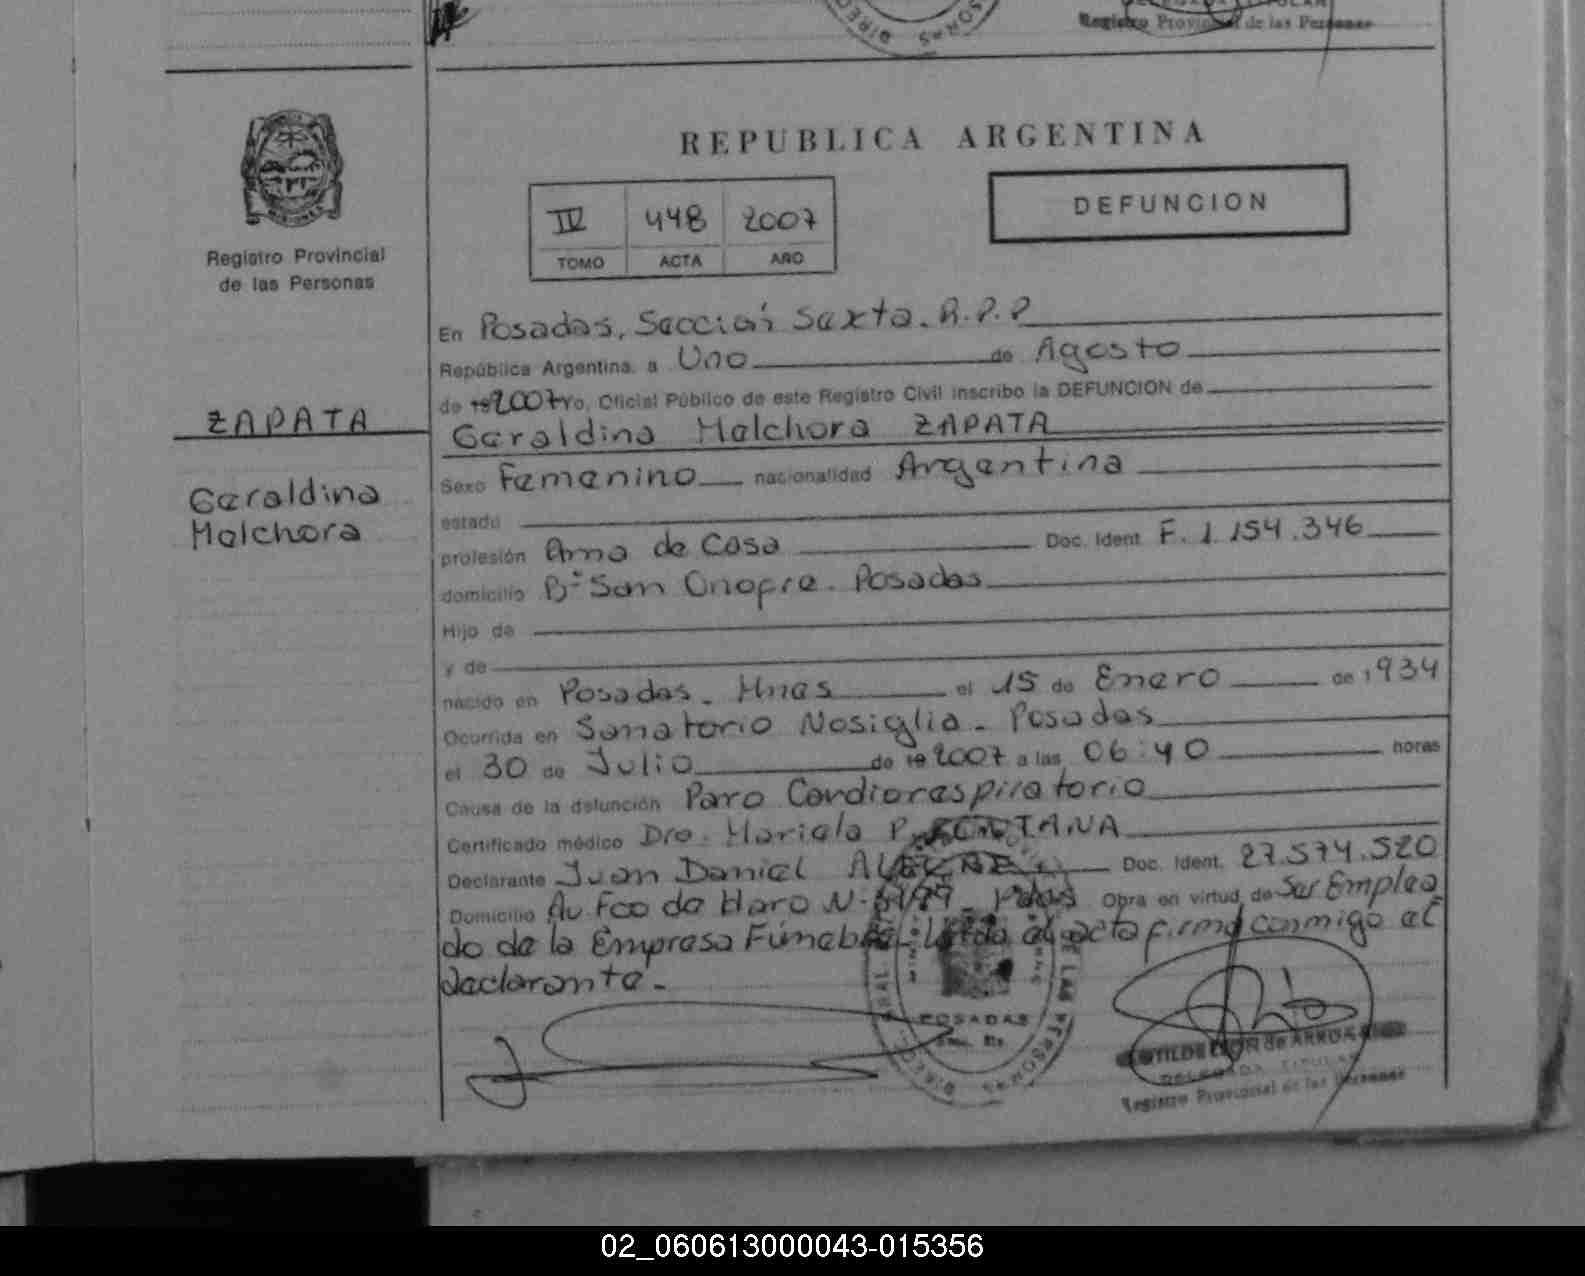 Registro Provincial de las Personas
REPUBLICA ARGENTINA
IV 448 2007
TOMO ACTA AÑO
DEFUNCION
Registro Provincial
de las Personas
ZAPATA
Geraldina
Melchora
En Posadas, Sección Sexta. R.P.P
República Argentina, a Uno de Agosto
de 19 2007 Yo, Oficial Público de este Registro Civil inscribo la DEFUNCION de
Geraldina Melchora ZAPATA
Sexo Femenino nacionalidad Argentina
estado
profesión Ama de Casa Doc. Ident. F. 1.154.346
domicilio B° San Onofre. Posadas
Hijo de
y de
nacido en Posadas. Mnes el 15 de Enero de 1934
Ocurrida en Sanatorio Nosiglia - Posadas
el 30 de Julio de 19 2007 a las 06:40 horas
Causa de la defunción Paro Cardiorespiratorio
Certificado médico Dra. Mariela P. FONTANA
Declarante Juan Daniel Doc. Ident. 27.574.520
Domicilio Av. Fco de Haro N° Pdas Obra en virtud de Ser Emplea
do de la Empresa Fúnebre. Leída el acta firma conmigo el
declarante.-
POSADAS
DE LAS PERSONAS
de ARRUA
DELEGADA TITULAR
Registro Provincial de las Personas
02_060613000043-015356